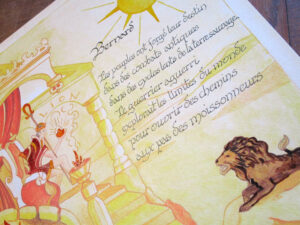 Bernard
Les peuples ont forgé leur destin
dans des combats antiques
dans des cycles lents de la terre sauvage.
Le guerrier aguerri
explorait les limites du monde
pour ouvrir des chemins
aux pas des moissonneurs